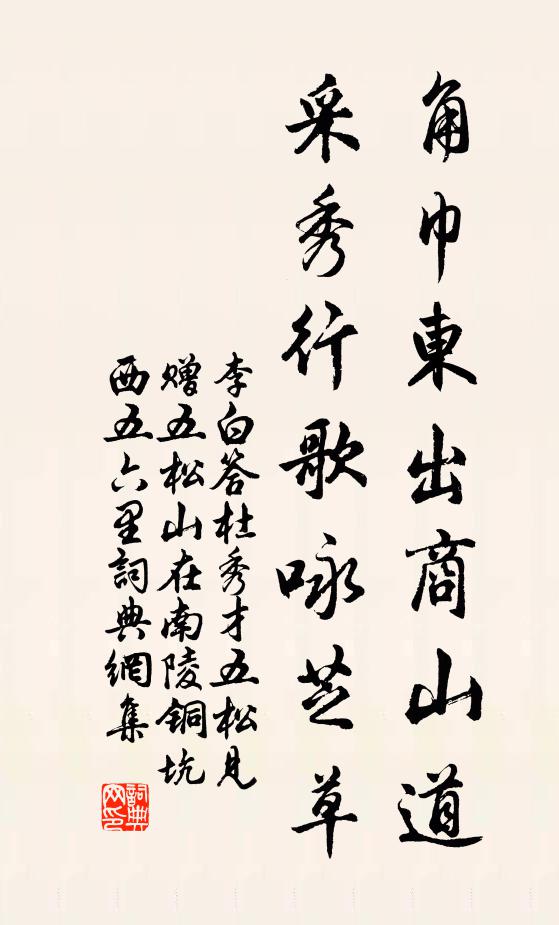 角巾東出商山道
采秀行歌咏芝草
李白答杜秀才五松見
赠五松山在南陵铜坑
西五六里詞典網集
詞典网印